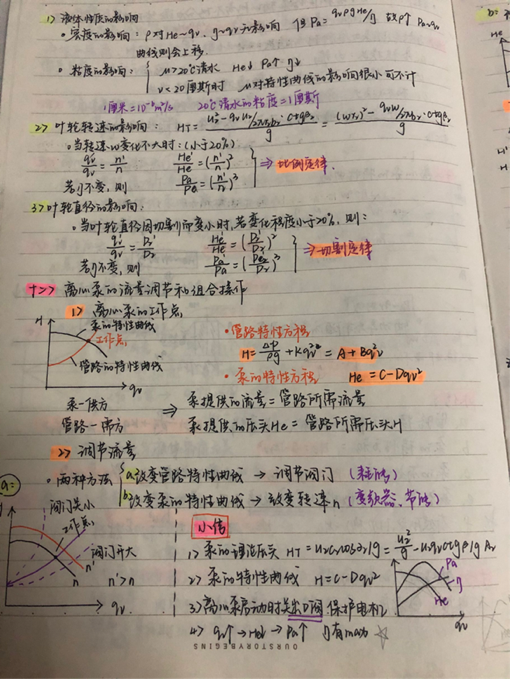 1) 液体性质的影响
• 密度的影响: ρ对He~qv、η~qv无影响 但Pa=qvρgHe/η 故ρ↑ Pa~qv
曲线则会上移.
• 粘度的影响: { μ>20℃清水 He↓ Pa↑ η↓
ν<20厘斯时 μ对特性曲线的影响很小可不计
1厘斯=10⁻⁶m²/s 20℃清水的粘度=1厘斯
2) 叶轮转速的影响: HT=(u₂²-qv u₂/2πr₂b₂·ctgβ₂)/g=((wr₂)²-qvw/2πb₂·ctgβ₂)/g
• 当转速n变化不大时: (小于20%)
qv'/qv=n'/n He'/He=(n'/n)²
若η不变, 则 Pa'/Pa=(n'/n)³ ⇒比例定律.
3) 叶轮直径的影响:
• 当叶轮直径因切割而变小时, 若变化程度小于20%, 则:
qv'/qv=D₂'/D₂ He'/He=(D₂'/D₂)²
若η不变, 则 Pa'/Pa=(D₂'/D₂)³ ⇒切割定律
十二) 离心泵的流量调节和组合操作
1) 离心泵的工作点
H
泵的特性曲线
工作点
管路的特性曲线
qv
• 管路特性方程
H=ΔP/ρg+Kqv²=A+Bqv²
• 泵的特性方程 He=C-Dqv²
泵—供方 ⇒ 泵提供的流量=管路所需流量
管路—需方 泵提供的压头He=管路所需压头H
2) 调节流量
• 两种方法 { a 改变管路特性曲线 → 调节阀门 (耗能)
b 改变泵的特性曲线 → 改变转速n (变频器、节能)
a:
阀门关小
工作点
阀门开大
n' n
n'>n
qv
小结
1) 泵的理论压头 HT=u₂c₂cosα₂/g=u₂²/g-u₂qvctgβ₂/gA₂
2) 泵的特性曲线 H=C-Dqv²
3) 离心泵启动时关出口阀 保护电机
4) qv↑→He↓→Pa↑ η有max
Pa
η
He
qv
OURSTORYBEGINS